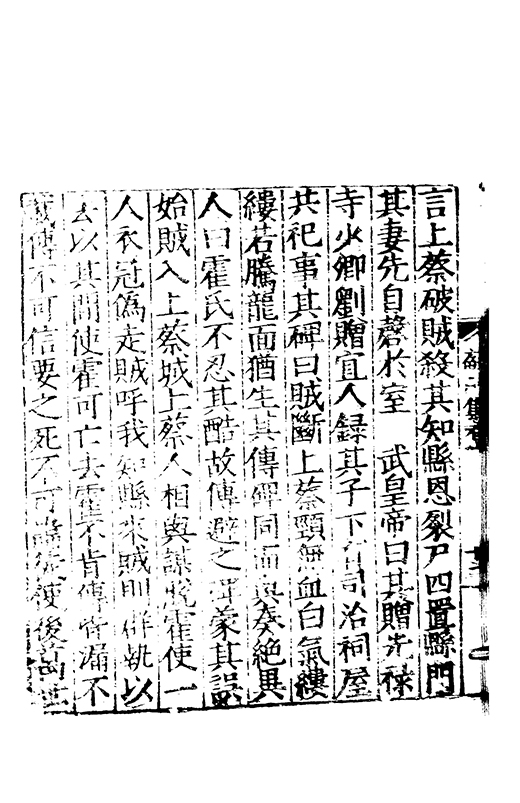 言上蔡破賊殺其知縣恩裂尸四置縣門
其妻先自磬於室　武皇帝曰其贈光祿
寺少卿劉贈宜人録其子下有司治祠屋
共祀事其碑曰賊斷上蔡頸無血白氣縷
縷若騰龍面猶生其傳碑同而與奏絕異
人曰霍氏不忍其酷故傳避之碑蒙其誤
始賊入上蔡城上蔡人相與謀脫霍使一
人衣冠偽走賊呼我知縣來賊則群執以
去以其間使霍可亡去霍不肯傳皆漏不
載傳不可信要之死不可使後萬世